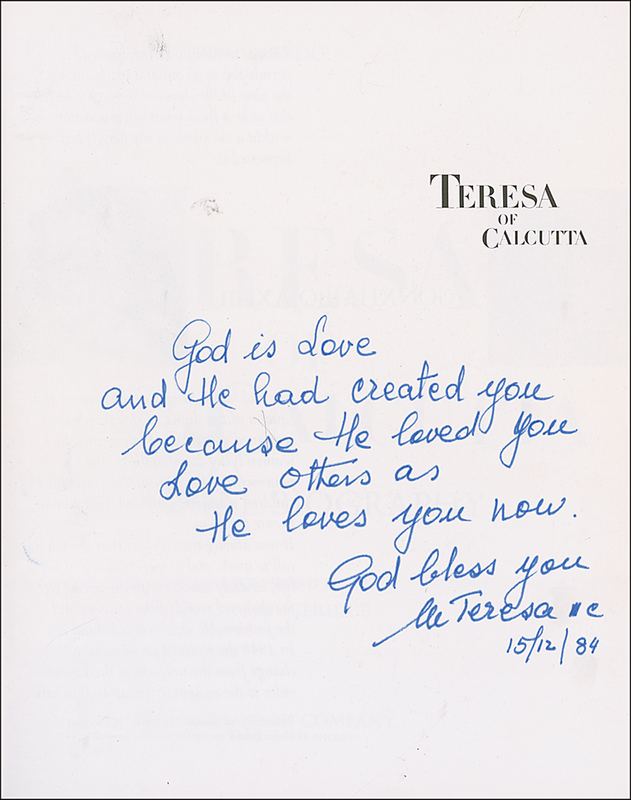 TERESA
OF
CALCUTTA
God is Love
and He had created you
because He loved you
Love others as
He loves you now.
God bless you
M Teresa mc
15/12/84